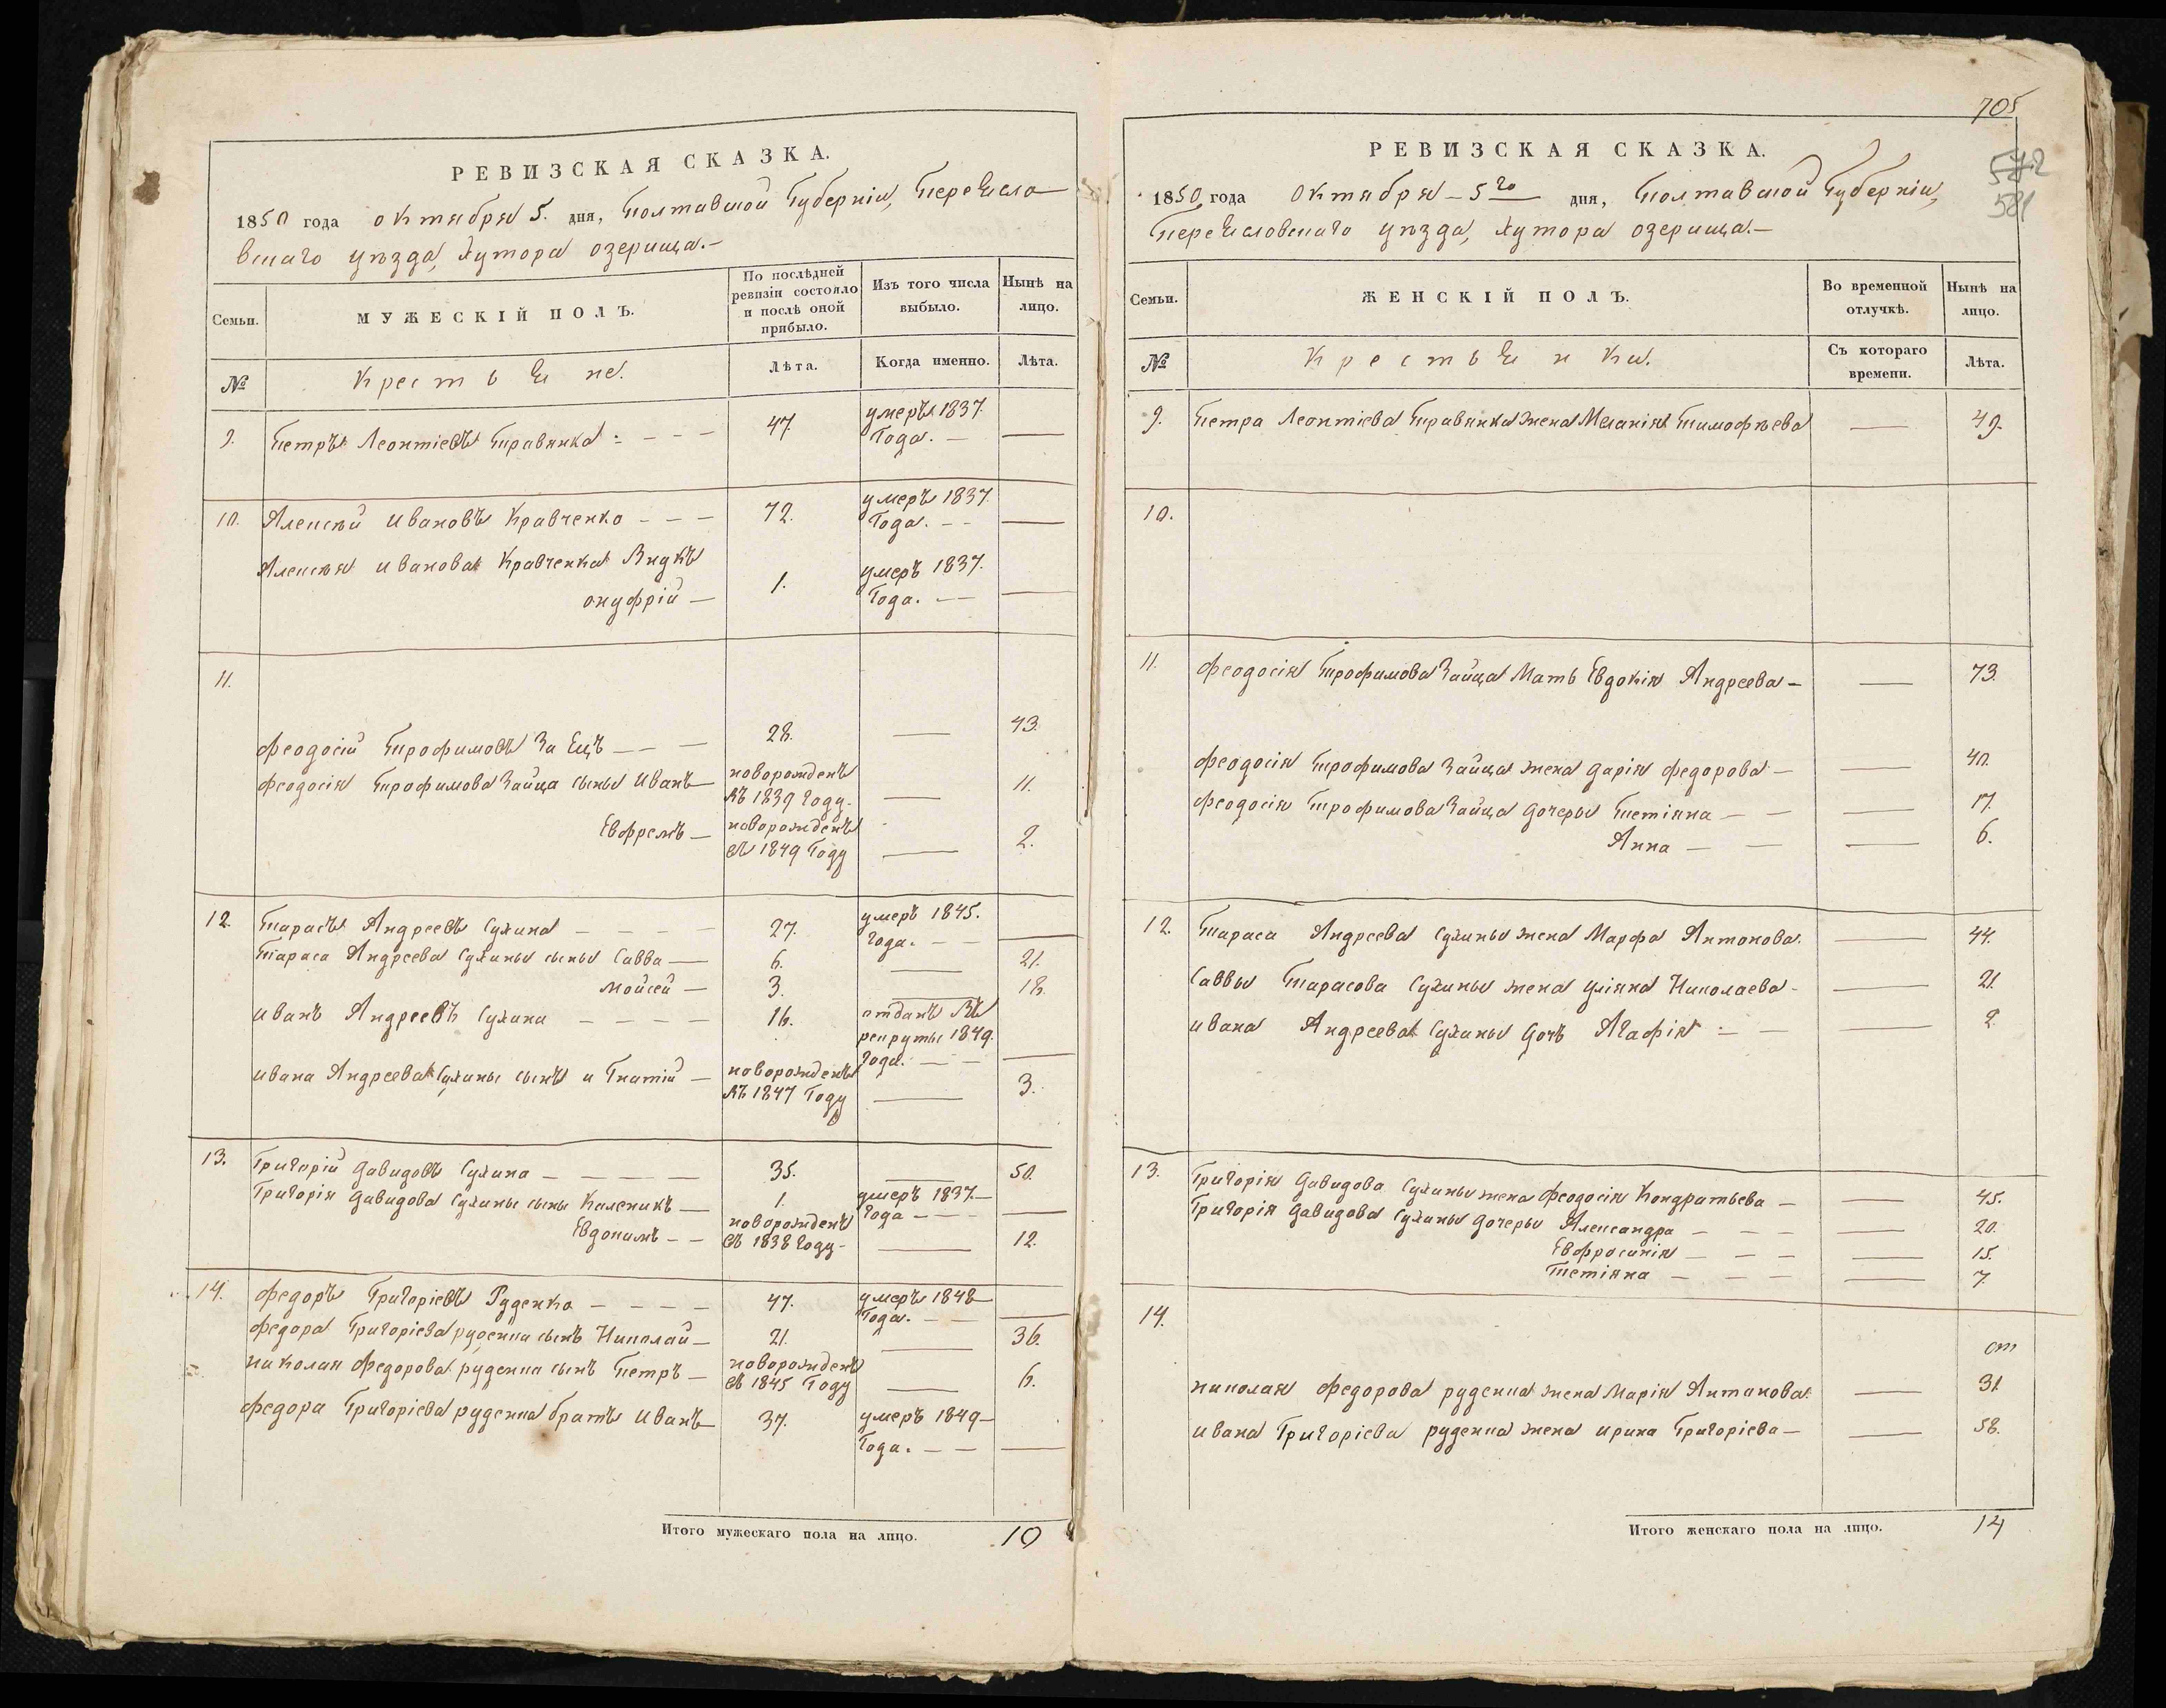 РЕВИЗСКАЯ СКАЗКА.
1850 года октября 5. дня, Полтавской Губернiи, Переясло
вскаго уѣзда, хутора озерища.—
Семьи.
МУЖЕСКІЙ ПОЛЪ.
По послѣдней ревизіи состояло и послѣ оной прибыло.
Изъ того числа выбыло.
Нынѣ на лицо.
№
Крестьяне.
Лѣта.
Когда именно.
Лѣта.
9. Петръ Леонтіевъ Правянка 47. умеръ 1837. Года. —
10. Алексѣй Ивановъ Кравченко — 72. умеръ 1837. Года. —
Алексѣя Иванова Кравченка Внукъ
онуфрій — 1. умеръ 1837. Года. —
11.
феодосій Трофимовъ Заецъ — 28. — 43.
феодосія Трофимова Зайца сыны Иванъ — новорожденъ въ 1839 году. — 11.
Евфремъ — новорожденъ въ 1849 Году — 2.
12. Тарасъ Андреевъ Сухина — 27. умеръ 1845. года. —
Тараса Андреева Сухины сыны Савва — 6. — 21.
Мойсей — 3. — 18.
иванъ Андреевъ Сухина — 16. отданъ въ рекруты 1849. года. —
ивана Андреева Сухины сынъ и Гнатій — новорожденъ въ 1847 Году — 3.
13. Григорій Давидовъ Сухина — 35. — 50.
Григорія Давидова Сухины сыны Каленикъ — 1. умеръ 1837 — года —
Евдокимъ — новорожденъ въ 1838 году — 12.
14. федоръ Григоріевъ Руденко — 47. умеръ 1848 Года. —
федора Григоріева руденка сынъ Николай — 21. — 36.
николая федорова руденка сынъ Петръ — новорожденъ въ 1845 Году — 6.
федора Григоріева руденка братъ Иванъ — 37. умеръ 1849 — Года. —
Итого мужескаго пола на лицо. 10
705
572
581
РЕВИЗСКАЯ СКАЗКА.
1850 года Октября — 5го дня, Полтавской Губерніи,
Переясловскаго уѣзда, хутора озерища.—
Семьи.
ЖЕНСКІЙ ПОЛЪ.
Во временной отлучкѣ.
Нынѣ на лицо.
№
Крестьянки.
Съ котораго времени.
Лѣта.
9. Петра Леонтіева Правянки жена Меланія Тимофѣева — 49.
10.
11. феодосія Трофимова Зайца Мать Евдокія Андреева — 73.
феодосія Трофимова Зайца жена дарія федорова — 40.
феодосія Трофимова Зайца дочеры Тетіяна — 17.
Анна — 6.
12. Тараса Андреева Сухины жена Марфа Антонова. — 44.
Саввы Тарасова Сухины жена уліяна Николаева — 21.
ивана Андреева Сухины дочъ Агафія — 2.
13. Григорія Давидова Сухины жена феодосія Кондратьева — 45.
Григорія Давидова Сухины дочеры Александра — 20.
Евфросинія — 15.
Тетіяна — 7.
14.
николая федорова руденка жена Марія Антонова — 31.
ивана Григоріева руденка жена ирина Григоріева — 58.
Итого женскаго пола на лицо. 14